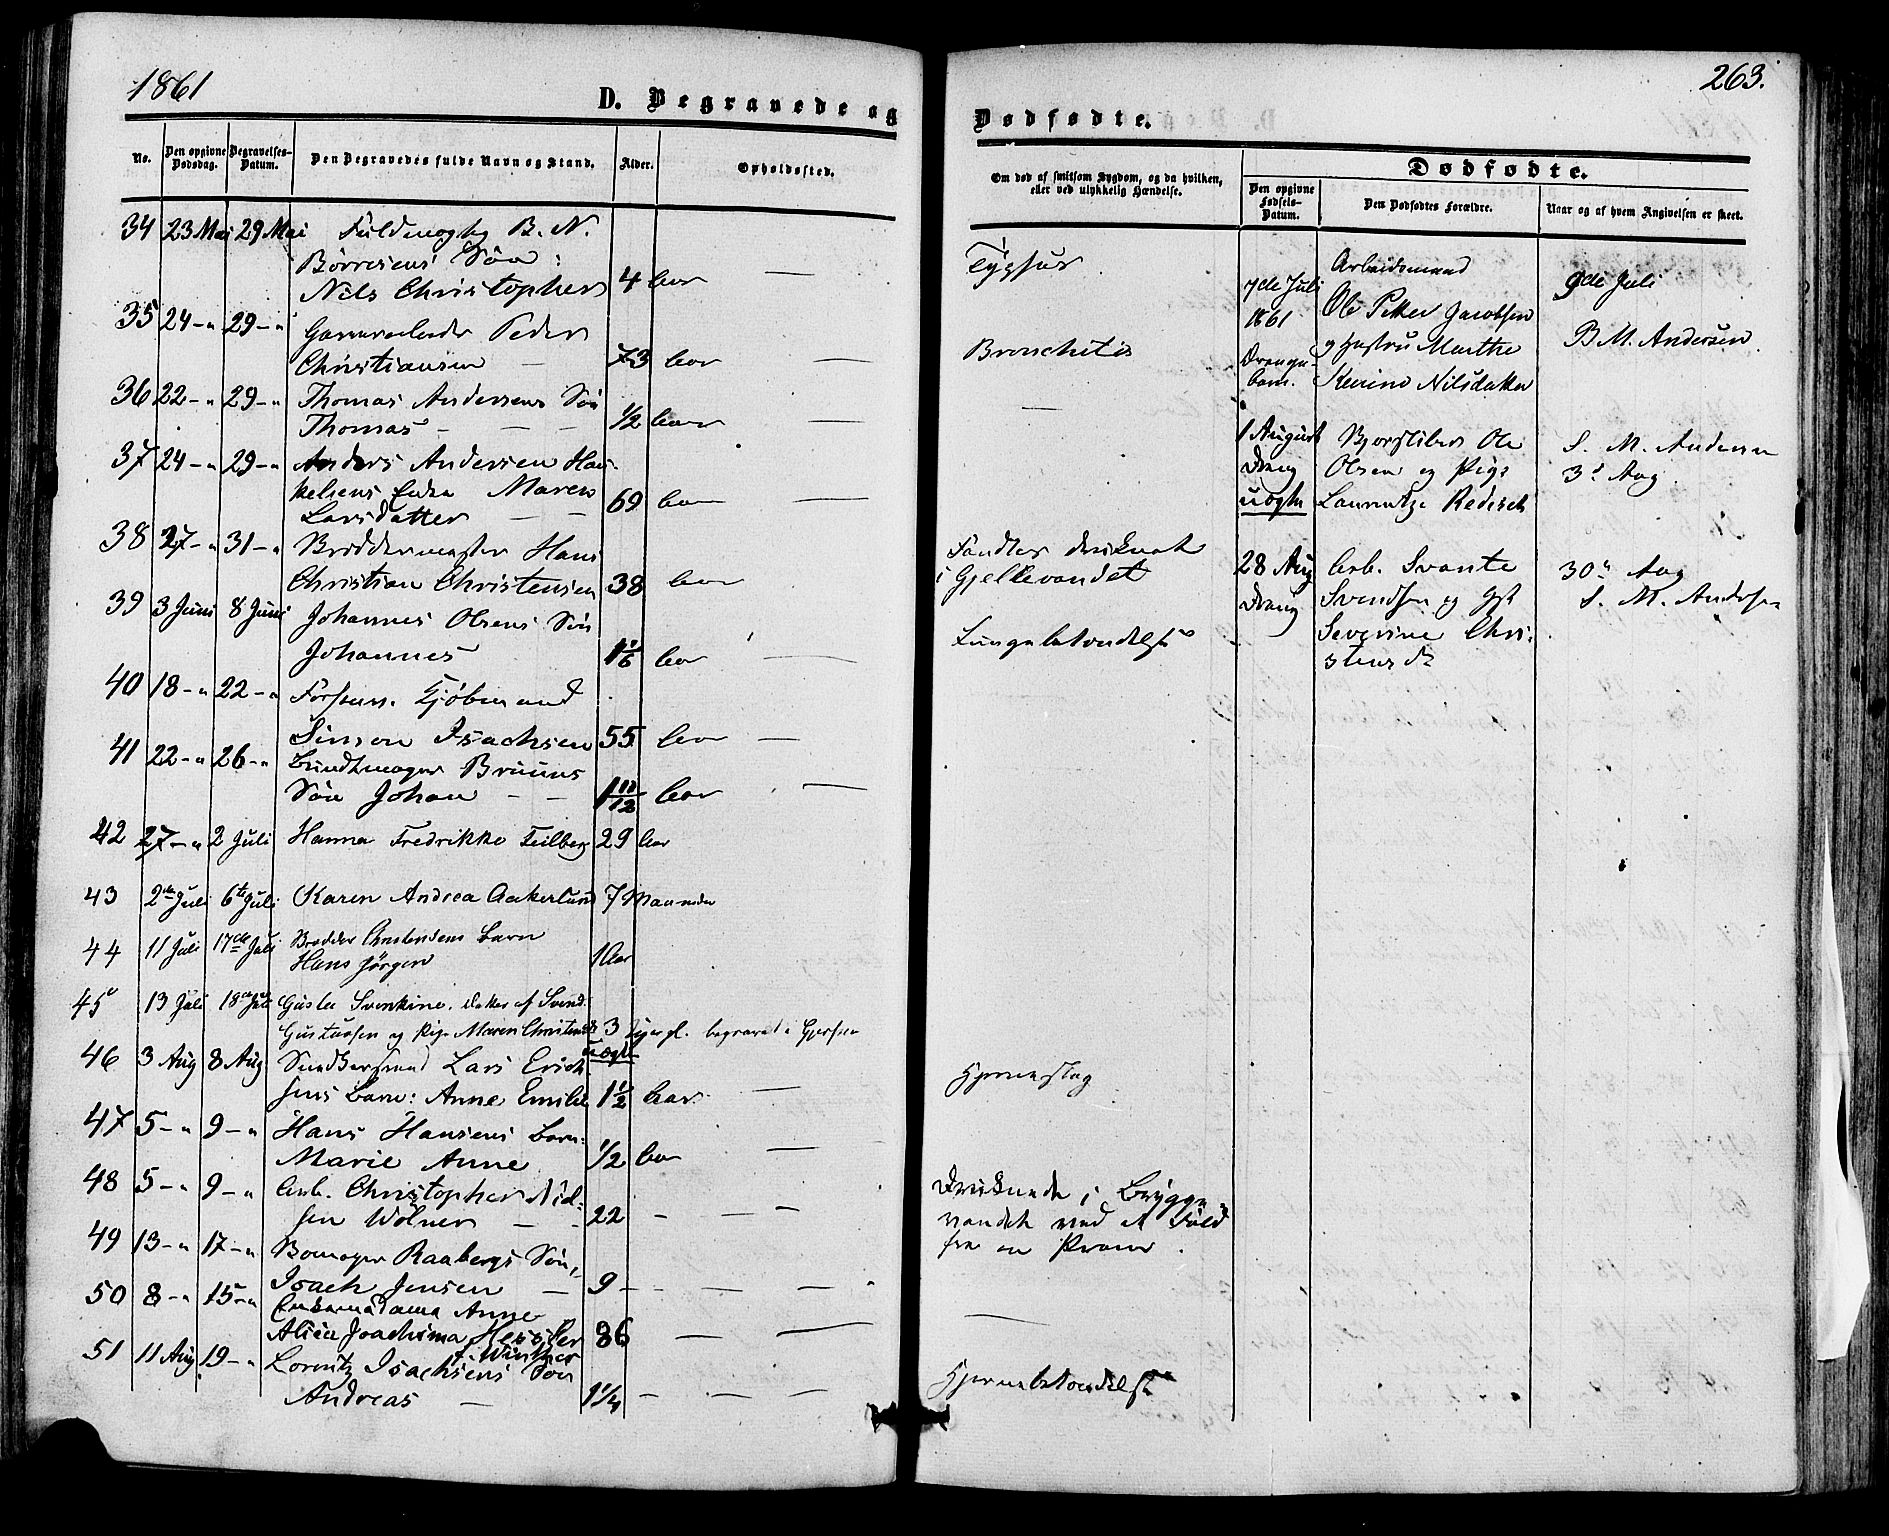 1861
D. Begravede og
No.
Den opgivne Dødsdag.
Begravelses-Datum.
Den Begravedes fulde Navn og Stand.
Alder.
Opholdssted.
34 23 Mai 29 Mai Fuldmægtig B. N.
Børresens Søn:
Nils Christopher 4 Aar —
35 24 – " 29 – " Peder
Christiansen — 73 Aar —
36 22 – " 29 – " Thomas Andersens Søn
Thomas – — — 1/2 Aar —
37 24 – " 29 – " Anders Andersen Hau-
kelsens Enke Maren
Larsdatter — — 69 Aar
38 27 – " 31 – " Bøddermester Hans
Christian Christensen 38 Aar
39 3 Juni 8 Juni Johannes Olsens Søn
Johannes 1 1/6 Aar —
40 18 – " 22 – " Kjøbmand
Simon Isachsen 55 Aar —
41 22 – " 26 – " Buntmager Bruuns
Søn Johan – — 1 11/12 Aar —
42 27 – " 2 Juli Hanna Fredrikke Feilberg 29 Aar
43 2den Juli 6te Juli Karen Andrea Aakerlund 7 Maaneder
44 11 Juli 17de Juli Bødder Christensens Barn
Hans Jørgen 1 Aar
45 13 Juli 18de Juli Svenkine. Datter af Svend
Gustavsen og Pige Maren Christensd. 3 begravet i Gjerpen
uægte
46 3 Aug 8 Aug Lars Erich-
sens Barn: Anne Emilie 1 1/2 Aar —
47 5 – " 9 – " Hans Hansens Barn
Marie Anne 1/2 Aar —
48 5 – " 9 – " Arb. Christopher Niel-
sen Wølner — 22 – — —
49 13 – " 17 – " Raabergs Søn,
Isach Jensen — 9 – – — —
50 8 – " 15 – " Enkemadame Anne
Alida Joachima Hessler 86 — —
f. Winther
51 11 Aug 19 – " Lorentz Isachsens Søn
Andreas — 1 1/4 – — —
263.
Dødfødte.
Om død af smitsom Sygdom, og da hvilken,
eller ved ulykkelig Hændelse.
Dødfødte.
Den opgivne Fødsels-Datum.
Den Dødfødtes Forældre.
Naar og af hvem Angivelsen er skeet.
Typhus
Bronchitis
—
druknet
i Gjellevandet
Lungebetændelse
Hjerneslag
Druknede i Brygge-
vandet ved et Fald
fra en Pram.
—
Hjernebetændelse
7de Juli
1861
Drenge-
barn.
Arbeidsmand
Ole Petter Jacobsen
og Hustru Marthe
Karine Nilsdatter
9de Juli
B M. Andersen
1 August
Dreng
uægte
Ole
Olsen og Pige
S. M. Andersen
3d Aug
28 Aug
Dreng
Arb. Svante
Svendsen og Hst
Severine Chri-
stensd
30" Aug
S. M. Andersen